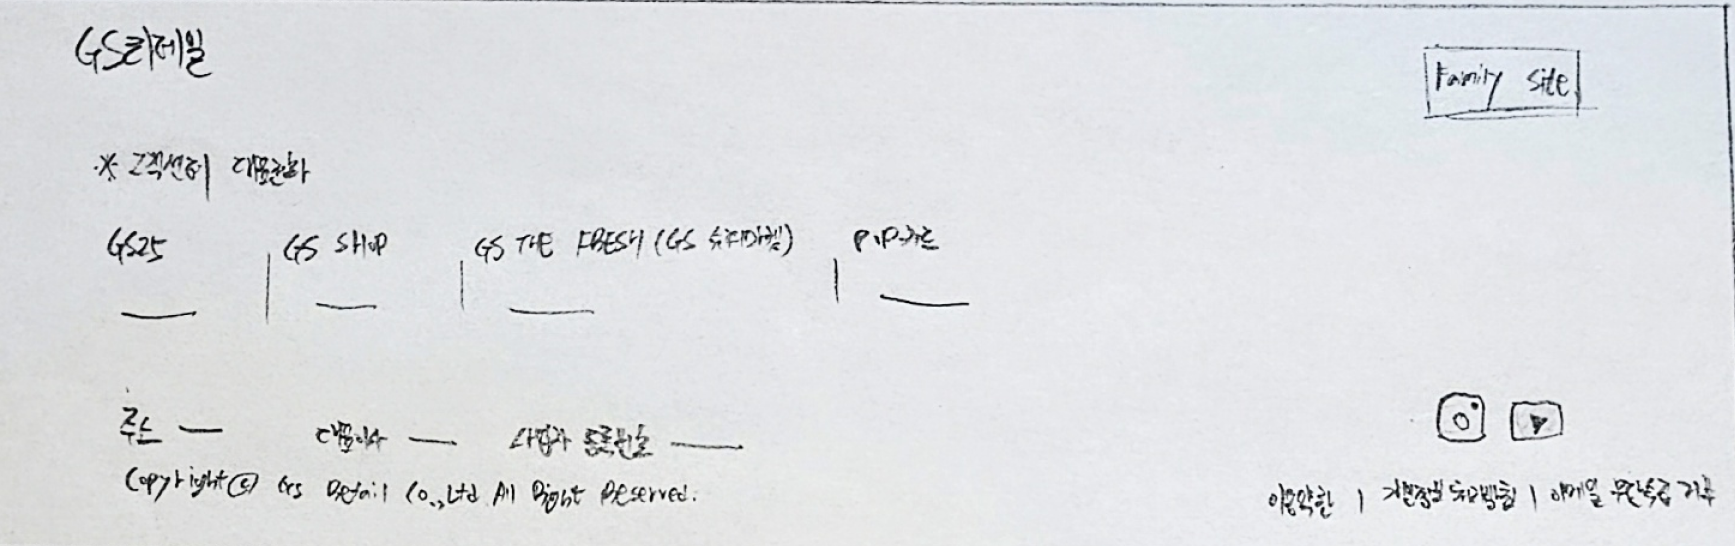 GS리테일
Family Site
※ 고객센터 대표전화
GS25 | GS SHOP | GS THE FRESH (GS 슈퍼마켓) | POP카드
주소 대표이사 사업자 등록번호
Copyright ⓒ GS Retail Co., Ltd All Right Reserved.
이용약관 | 개인정보 처리방침 | 이메일 무단수집 거부